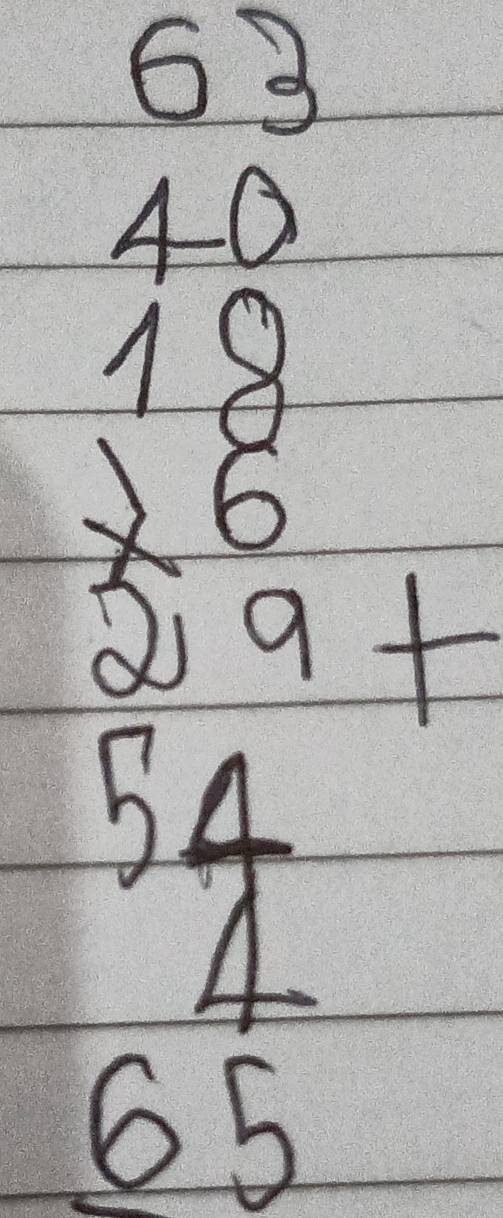 63
40
18
6
29 +
54
4
65